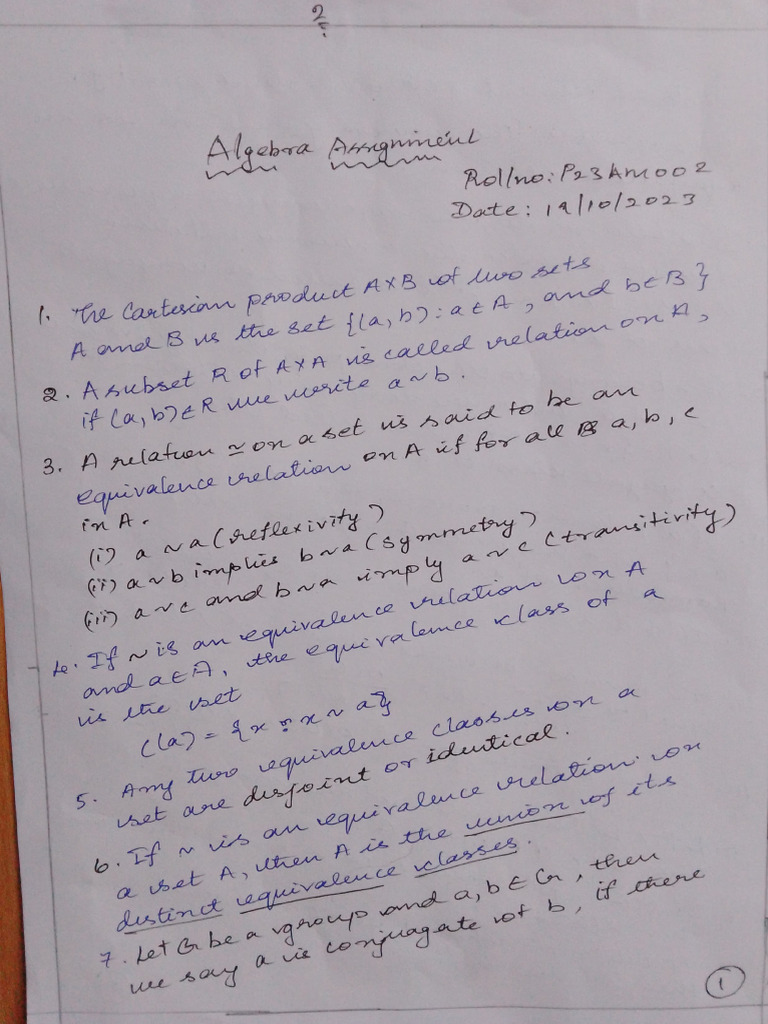 2
Algebra Assignment
Roll no: P23AM002
Date: 19/10/2023
1. The Cartesian product A×B of two sets
A and B is the set {(a, b): a ∈ A, and b ∈ B}
2. A subset R of A×A is called relation on A,
if (a, b) ∈ R we write a ~ b.
3. A relation ≃ on a set is said to be an
equivalence relation on A if for all a, b, c
in A.
(i) a ~ a (reflexivity)
(ii) a ~ b implies b ~ a (symmetry)
(iii) a ~ c and b ~ a imply a ~ c (transitivity)
4. If ~ is an equivalence relation on A
and a ∈ A, the equivalence class of a
is the set
C(a) = {x : x ~ a}
5. Any two equivalence classes on a
set are disjoint or identical.
6. If ~ is an equivalence relation on
a set A, then A is the union of its
distinct equivalence classes.
7. Let G be a group and a, b ∈ G, then
we say a is conjuagate of b, if there
1